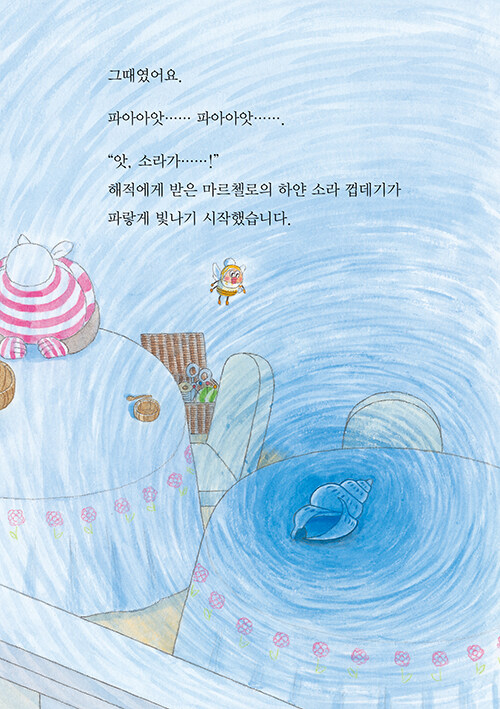 그때였어요.
파아아앗…… 파아아앗…….
“앗, 소라가……!”
해적에게 받은 마르첼로의 하얀 소라 껍데기가
파랗게 빛나기 시작했습니다.